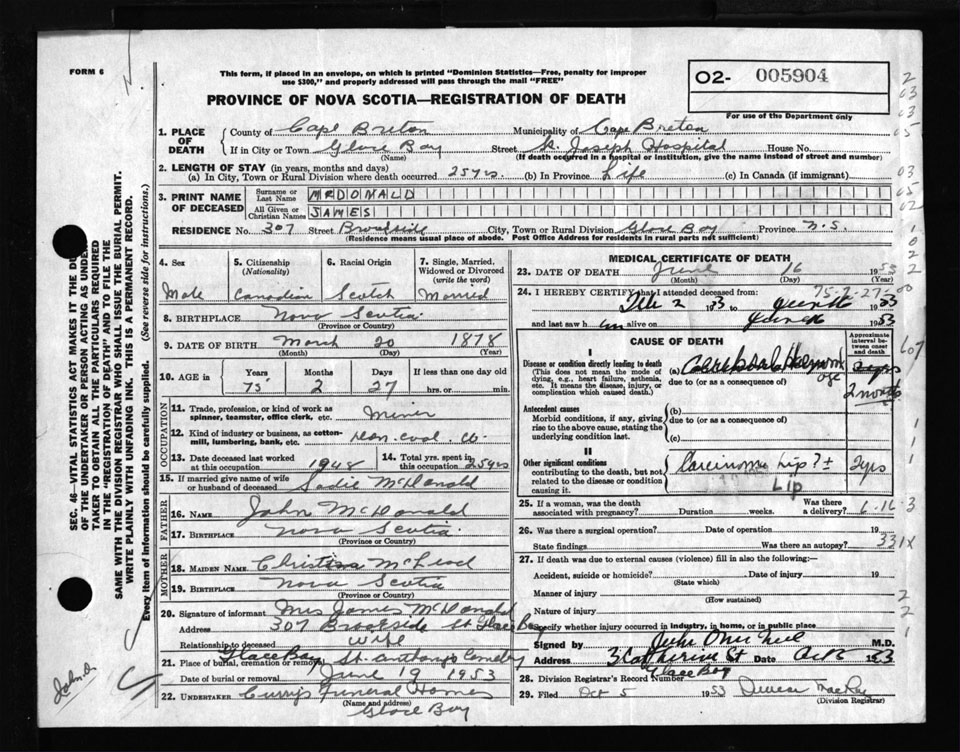 FORM 6
This form, if placed in an envelope, on which is printed "Dominion Statistics—Free, penalty for improper
use $300," and properly addressed will pass through the mail "FREE"
O2- 005904
For use of the Department only
PROVINCE OF NOVA SCOTIA—REGISTRATION OF DEATH
SEC. 46—VITAL STATISTICS ACT MAKES IT THE
OF THE UNDERTAKER OR PERSON ACTING AS UNDER
TAKER TO OBTAIN ALL THE PARTICULARS REQUIRED
IN THE "REGISTRATION OF DEATH" AND TO FILE THE
SAME WITH THE DIVISION REGISTRAR WHO SHALL ISSUE THE BURIAL PERMIT.
WRITE PLAINLY WITH UNFADING INK. THIS IS A PERMANENT RECORD.
Every item of information should be carefully supplied. (See reverse side for instructions.)
1. PLACE OF DEATH
County of Cape Breton Municipality of Cape Breton
If in City or Town Glace Bay Street St. Joseph Hospital House No.
(Name) (If death occurred in a hospital or institution, give the name instead of street and number)
2. LENGTH OF STAY (in years, months and days)
(a) In City, Town or Rural Division where death occurred 25 yrs. (b) In Province Life (c) In Canada (if immigrant)
3. PRINT NAME OF DECEASED
Surname or Last Name MCDONALD
All Given or Christian Names JAMES
RESIDENCE No. 307 Street Brookside City, Town or Rural Division Glace Bay Province N.S.
(Residence means usual place of abode. Post Office Address for residents in rural parts not sufficient)
4. Sex Male
5. Citizenship (Nationality) Canadian
6. Racial Origin Scotch
7. Single, Married, Widowed or Divorced (write the word) Married
8. BIRTHPLACE Nova Scotia
(Province or Country)
9. DATE OF BIRTH March 20 1878
(Month) (Day) (Year)
10. AGE in Years Months Days If less than one day
75 2 27 hrs. or min.
OCCUPATION
11. Trade, profession, or kind of work as
spinner, teamster, office clerk, etc. Miner
12. Kind of industry or business, as cotton-
mill, lumbering, bank, etc. Dom. Coal Co.
13. Date deceased last worked
at this occupation 1948
14. Total yrs. spent in
this occupation 25 yrs
15. If married give name of wife
or husband of deceased Sadie McDonald
FATHER
16. NAME John McDonald
17. BIRTHPLACE Nova Scotia
(Province or Country)
MOTHER
18. MAIDEN NAME Christina McLeod
19. BIRTHPLACE Nova Scotia
(Province or Country)
20. Signature of informant Mrs James McDonald
Address 307 Brookside St Glace Bay
Relationship to deceased wife
21. Place of burial, cremation or removal Glace Bay St. Anthony's Cemetery
Date of burial or removal June 19 1953
22. UNDERTAKER Curry's Funeral Homes
(Name and address)
Glace Bay
MEDICAL CERTIFICATE OF DEATH
23. DATE OF DEATH June 16 1953
(Month) (Day) (Year)
24. I HEREBY CERTIFY that I attended deceased from: 75-2-27-00
Feb 2 1953 to June 16 1953
and last saw h im alive on June 16 1953
CAUSE OF DEATH
Approximate interval between onset and death
I
Disease or condition directly leading to death
(This does not mean the mode of
dying, e.g., heart failure, asthenia,
etc. It means the disease, injury, or
complication which caused death.)
(a) Cerebral Hemorrhage
due to (or as a consequence of)
2 months
Antecedent causes
Morbid conditions, if any, giving
rise to the above cause, stating the
underlying condition last.
(b)
due to (or as a consequence of)
(c)
II
Other significant conditions
contributing to the death, but not
related to the disease or condition
causing it.
Carcinoma Lip ? ± 2 yrs
Lip
25. If a woman, was the death
associated with pregnancy? Duration weeks. Was there
a delivery? 6-16-3
26. Was there a surgical operation? Date of operation 19
State findings Was there an autopsy? 331X
27. If death was due to external causes (violence) fill in also the following:—
Accident, suicide or homicide? Date of injury 19
(State which)
Manner of injury
(How sustained)
Nature of injury
Specify whether injury occurred in industry, in home, or in public place
Signed by M.D.
Address 3 Catherine St Date Oct 2 1953
Glace Bay
28. Division Registrar's Record Number
29. Filed Oct 5 1953 MacKay
(Division Registrar)